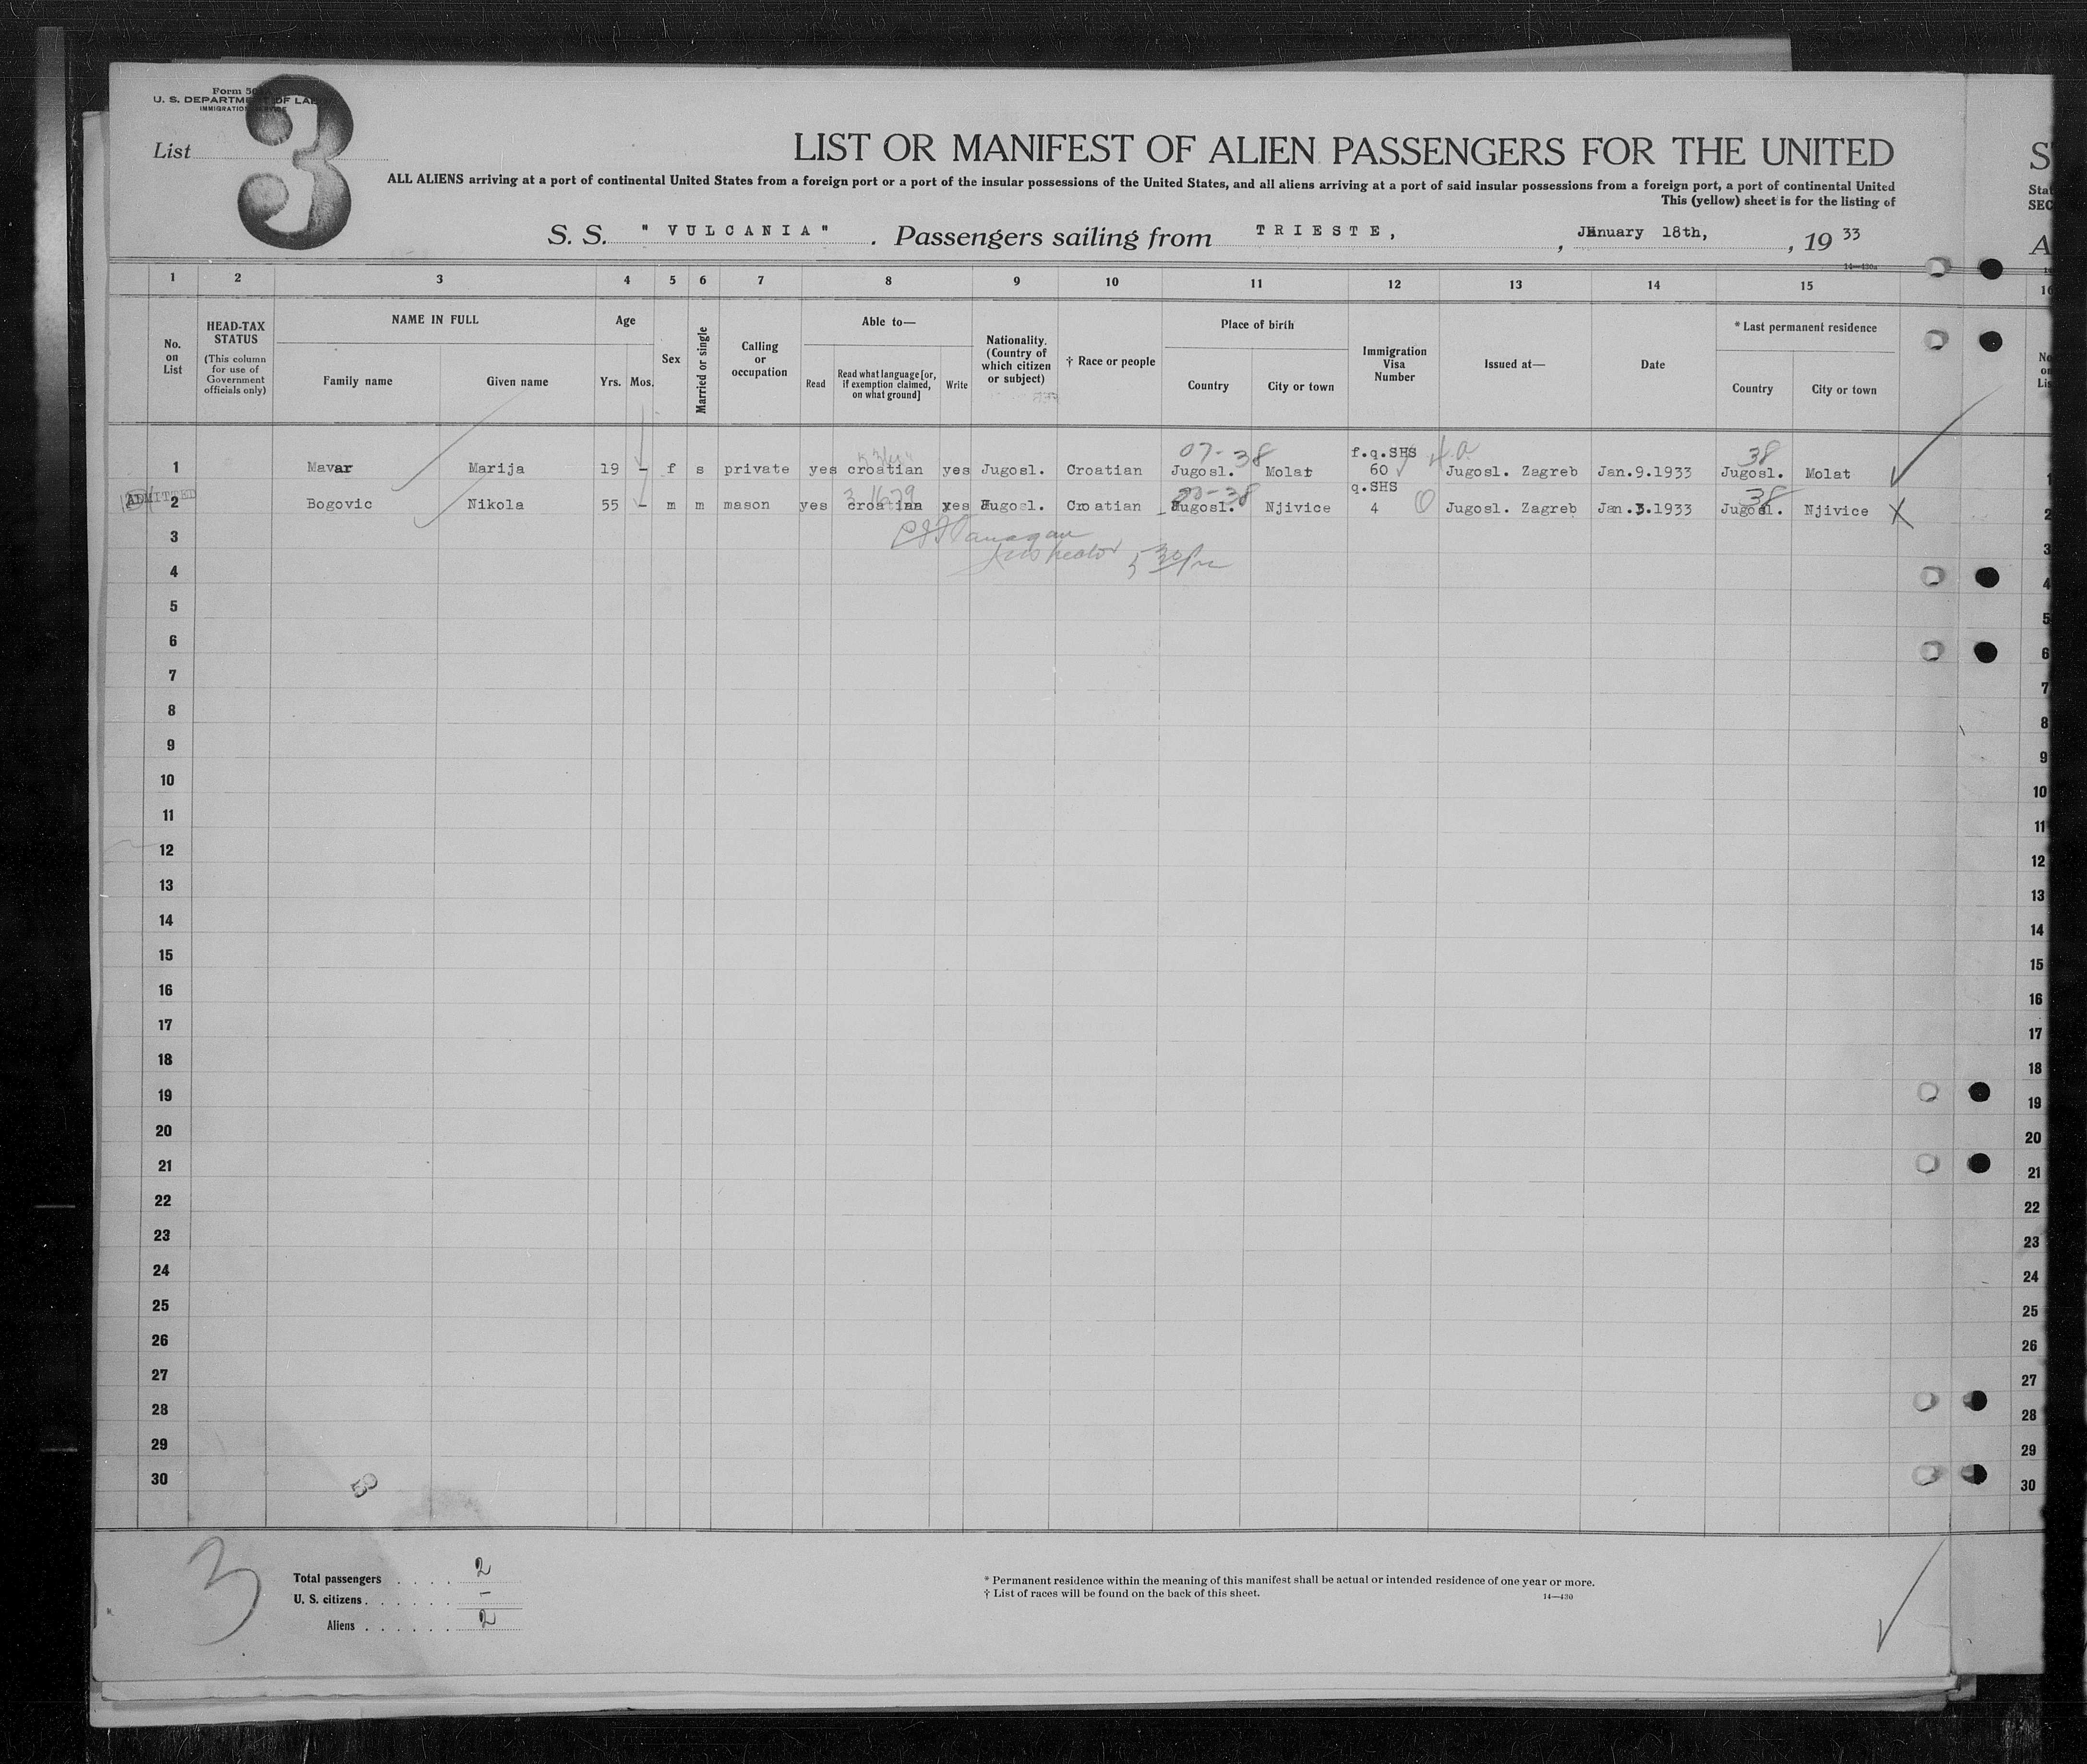 Form 50
U. S. DEPARTMENT OF LABOR
IMMIGRATION SERVICE
List 3
LIST OR MANIFEST OF ALIEN PASSENGERS FOR THE UNITED
ALL ALIENS arriving at a port of continental United States from a foreign port or a port of the insular possessions of the United States, and all aliens arriving at a port of said insular possessions from a foreign port, a port of continental United
This (yellow) sheet is for the listing of
S. S. "VULCANIA". Passengers sailing from TRIESTE, , January 18th, , 19 33
14—430a
1 2 3 4 5 6 7 8 9 10 11 12 13 14 15 16
No. on List
HEAD-TAX STATUS (This column for use of Government officials only)
NAME IN FULL
Family name Given name
Age
Yrs. Mos.
Sex
Married or single
Calling or occupation
Able to—
Read
Read what language [or, if exemption claimed, on what ground]
Write
Nationality. (Country of which citizen or subject)
† Race or people
Place of birth
Country City or town
Immigration Visa Number
Issued at—
Date
* Last permanent residence
Country City or town
07-38 f.q.SHS 38
1 Mavar Marija 19 - f s private yes croatian yes Jugosl. Croatian Jugosl. Molat 60 Jugosl. Zagreb Jan.9.1933 Jugosl. Molat
ADMITTED 38 q.SHS 38
2 Bogovic Nikola 55 - m m mason yes croatian yes Jugosl. Croatian Jugosl. Njivice 4 Jugosl. Zagreb Jan.3.1933 Jugosl. Njivice X
3
Inspector 5 30 Pm
4
5
6
7
8
9
10
11
12
13
14
15
16
17
18
19
20
21
22
23
24
25
26
27
28
29
30
3
Total passengers . . . . 2
U. S. citizens . . . . . . -
Aliens . . . . . . 2
* Permanent residence within the meaning of this manifest shall be actual or intended residence of one year or more.
† List of races will be found on the back of this sheet.
14—430
S
Stat
SEC
A
No
on
Lis
1
2
3
4
5
6
7
8
9
10
11
12
13
14
15
16
17
18
19
20
21
22
23
24
25
26
27
28
29
30